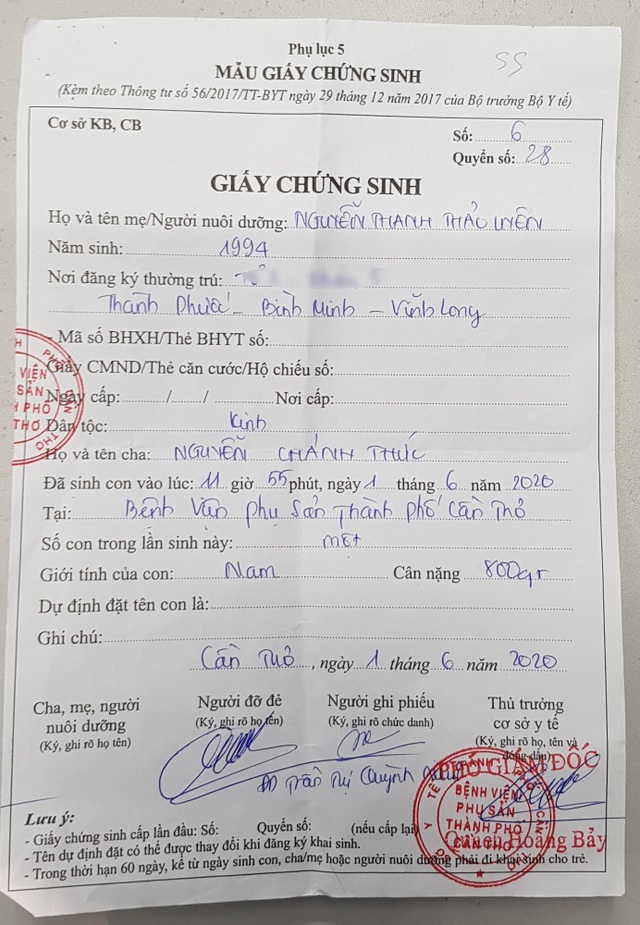 Phụ lục 5
SS
MẪU GIẤY CHỨNG SINH
(Kèm theo Thông tư số 56/2017/TT-BYT ngày 29 tháng 12 năm 2017 của Bộ trưởng Bộ Y tế)
Cơ sở KB, CB
Số: 6
Quyển số: 28
GIẤY CHỨNG SINH
Họ và tên mẹ/Người nuôi dưỡng: NGUYỄN THANH THẢO UYÊN
Năm sinh: 1994
Nơi đăng ký thường trú:
Thành Phước - Bình Minh - Vĩnh Long
- Mã số BHXH/Thẻ BHYT số:
Giấy CMND/Thẻ căn cước/Hộ chiếu số:
Ngày cấp: / / Nơi cấp:
Dân tộc: Kinh
Họ và tên cha: NGUYỄN CHÁNH THỨC
Đã sinh con vào lúc: 11 giờ 55 phút, ngày 1 tháng 6 năm 2020
Tại: Bệnh Viện phụ Sản Thành phố Cần Thơ
Số con trong lần sinh này: một
Giới tính của con: Nam Cân nặng 800gr
Dự định đặt tên con là:
Ghi chú:
Cần Thơ, ngày 1 tháng 6 năm 2020
Cha, mẹ, người nuôi dưỡng
(Ký, ghi rõ họ tên)
Người đỡ đẻ
(Ký, ghi rõ họ tên)
Người ghi phiếu
(Ký, ghi rõ chức danh)
Thủ trưởng cơ sở y tế
(Ký, ghi rõ họ, tên và đóng dấu)
Trần Thị Quỳnh
PHÓ GIÁM ĐỐC
BỆNH VIỆN
PHỤ SẢN
THÀNH PHỐ
CẦN THƠ
Hoàng Bảy
VIỆN
SẢN
PHỐ
THƠ
Lưu ý:
- Giấy chứng sinh cấp lần đầu: Số: Quyển số: (nếu cấp lại)
- Tên dự định đặt có thể được thay đổi khi đăng ký khai sinh.
- Trong thời hạn 60 ngày, kể từ ngày sinh con, cha/mẹ hoặc người nuôi dưỡng phải đi khai sinh cho trẻ.